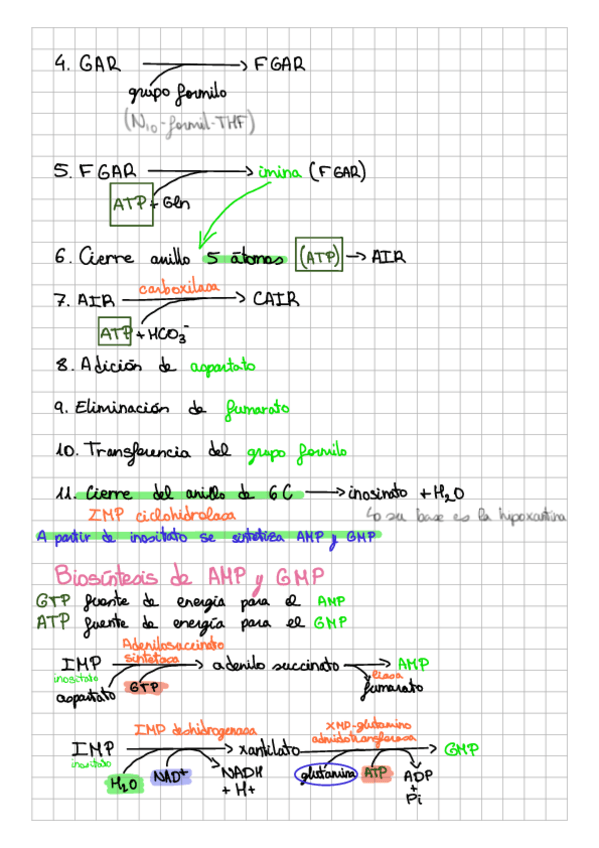 4. GAR → FGAR
grupo formilo
(N10-formil-THF)
5. FGAR → imina (FGAR)
ATP + Gln
6. Cierre anillo 5 átomos (ATP) → AIR
carboxilasa
7. AIR → CAIR
ATP + HCO3-
8. Adición de aspartato
9. Eliminación de fumarato
10. Transferencia del grupo formilo
11. Cierre del anillo de 6C → inosinato + H2O
IMP ciclohidrolasa
↳ su base es la hipoxantina
A partir de inositato se sintetiza AMP y GMP
Biosíntesis de AMP y GMP
GTP fuente de energía para el AMP
ATP fuente de energía para el GMP
Adenilosuccinato
sintetasa
IMP → adenilo succinato → AMP
inositato
liasa
aspartato
GTP
fumarato
IMP deshidrogenasa
XMP-glutamino
amidotransferasa
IMP → xantilato → GMP
inositato
H2O
NAD+
NADH
+ H+
glutamina
ATP
ADP
+
Pi